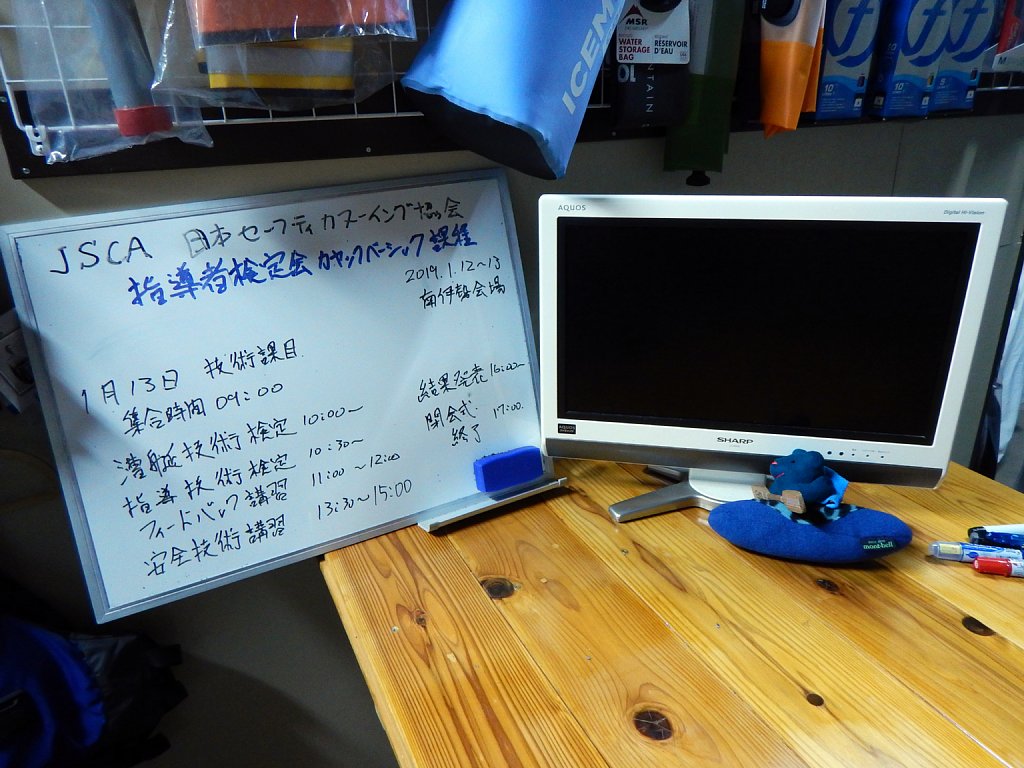 ICEM
MSR
WATER STORAGE BAG
RÉSERVOIR D'EAU
10
10
JSCA 日本セーフティカヌーイング協会
指導者検定会 カヤックベーシック課程
2019.1.12~13
南伊勢会場
1月13日 技術課目
集合時間 09:00
漕艇技術検定 10:00~
指導技術検定 10:30~
フィードバック講習 11:00 ~12:00
安全技術講習 13:30~15:00
結果発表 16:00~
閉会式
終了 17:00.
AQUOS
Digital Hi-Vision
AQUOS
SHARP
mont-bell